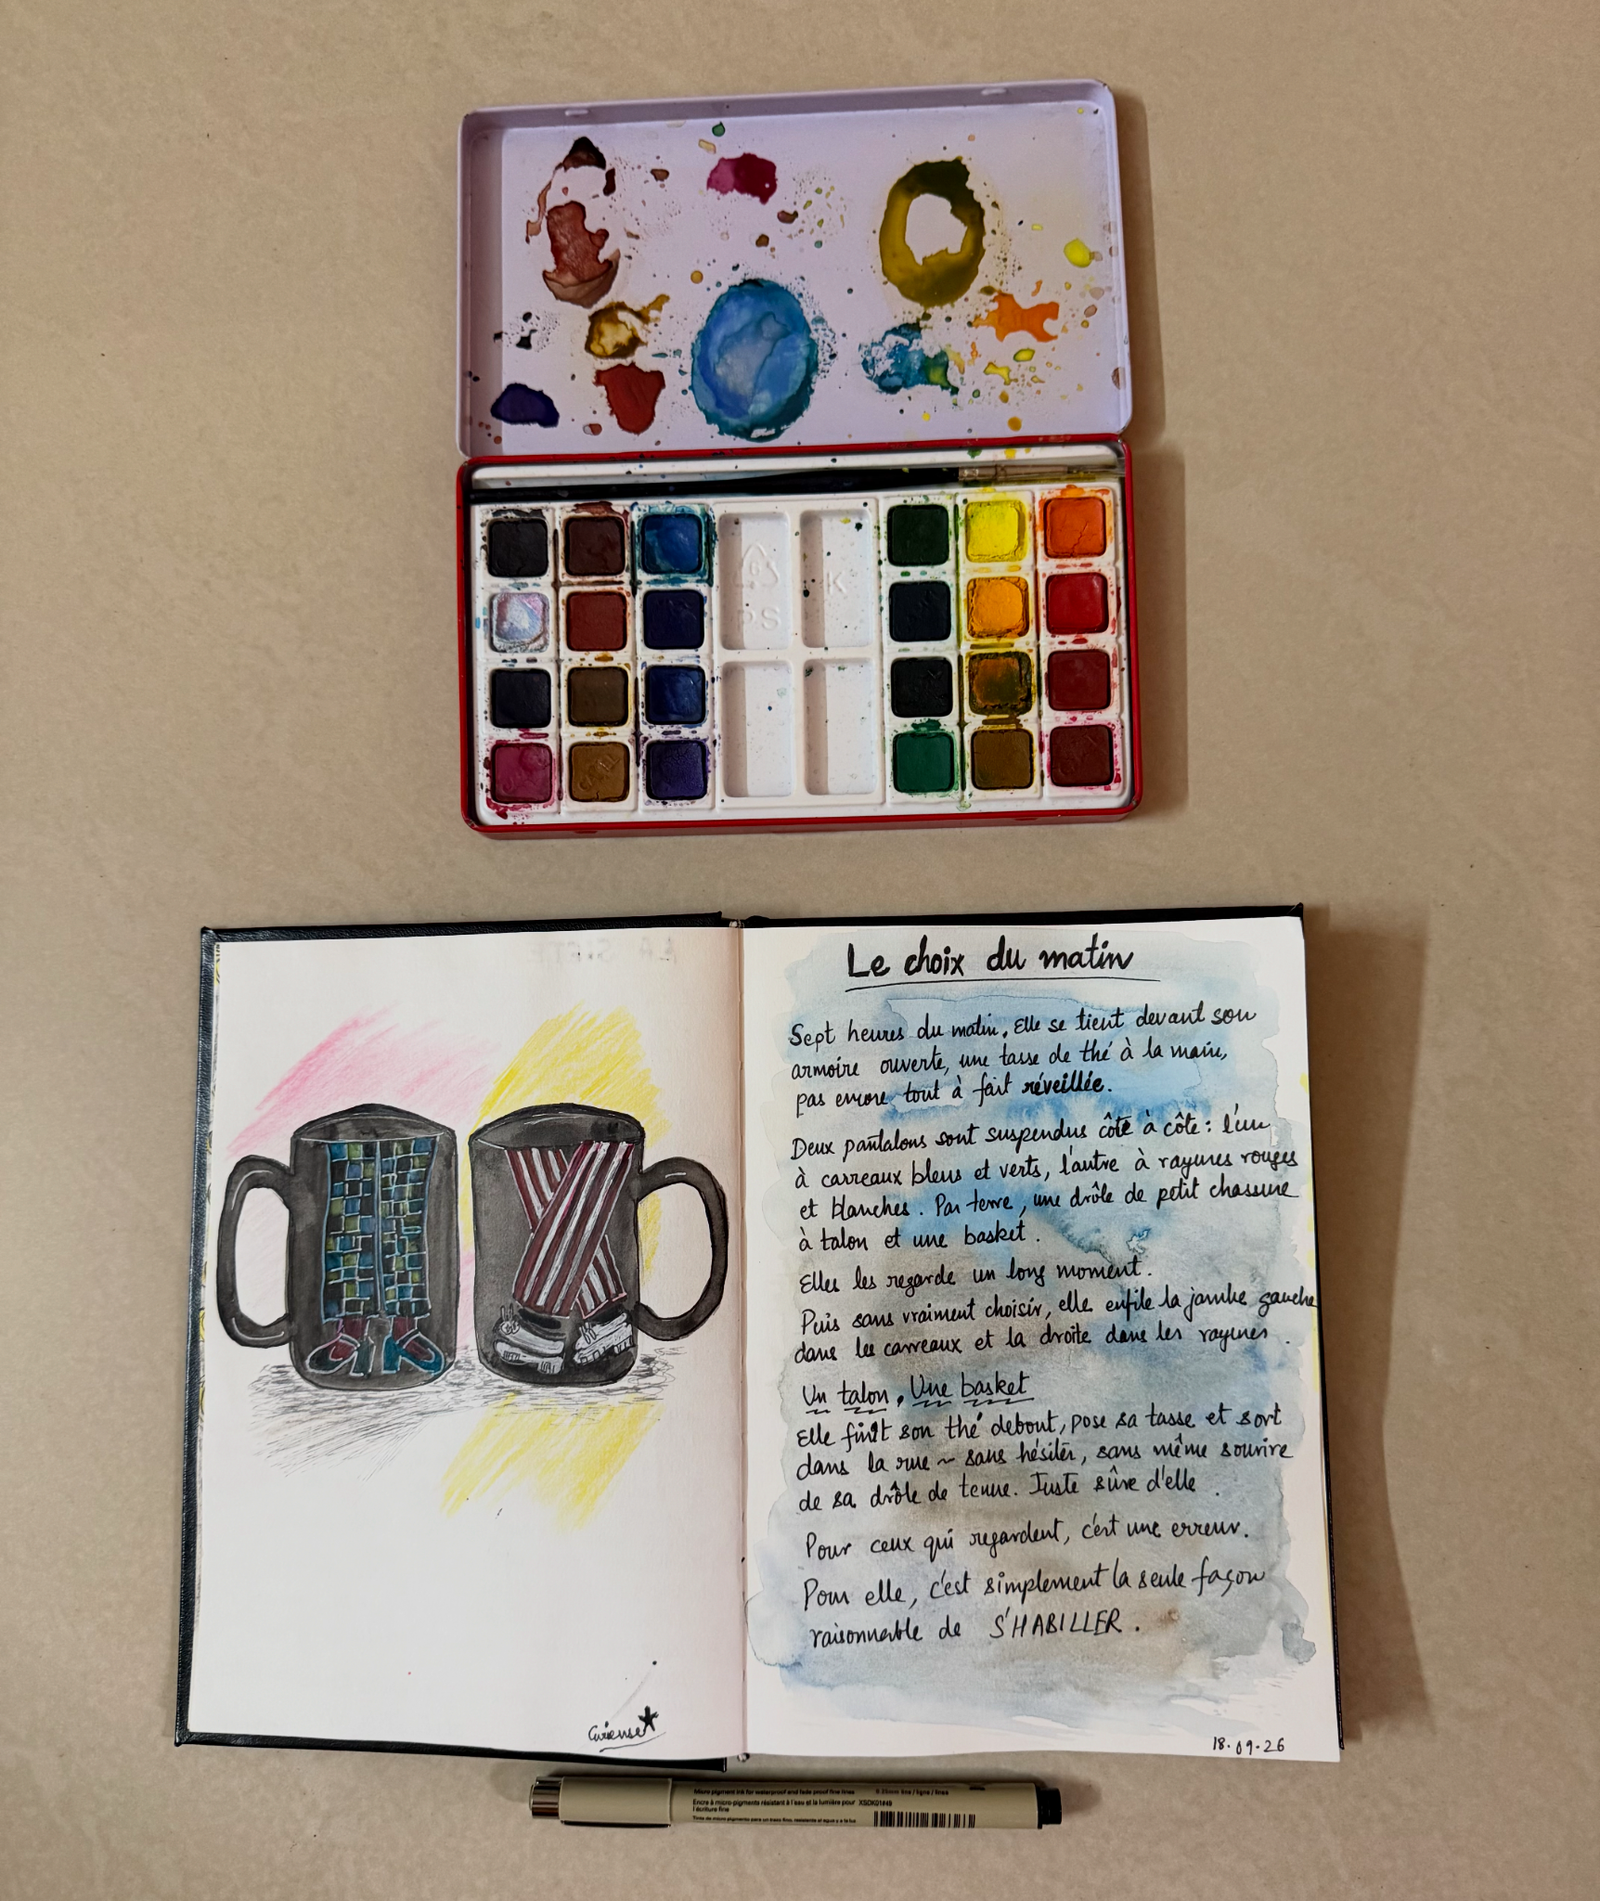 6
PS
K
Le choix du matin
Sept heures du matin. Elle se tient devant son
armoire ouverte, une tasse de thé à la main,
pas encore tout à fait réveillée.
Deux pantalons sont suspendus côte à côte : l'un
à carreaux bleus et verts, l'autre à rayures rouges
et blanches. Par terre, une drôle de petit chassure
à talon et une basket.
Elles les regarde un long moment.
Puis sans vraiment choisir, elle enfile la jambe gauche
dans les carreaux et la droite dans les rayures.
Un talon, Une basket
Elle finit son thé debout, pose sa tasse et sort
dans la rue ~ sans hésiter, sans même sourire
de sa drôle de tenue. Juste sûre d'elle.
Pour ceux qui regardent, c'est une erreur.
Pour elle, c'est simplement la seule façon
raisonnable de S'HABILLER.
Curieuse
18.09.26
Micro pigment ink for waterproof and fade proof fine lines
0.25mm line / ligne / linea
Encre à micro-pigments résistant à l'eau et la lumière pour
l'écriture fine
XSDK01#49